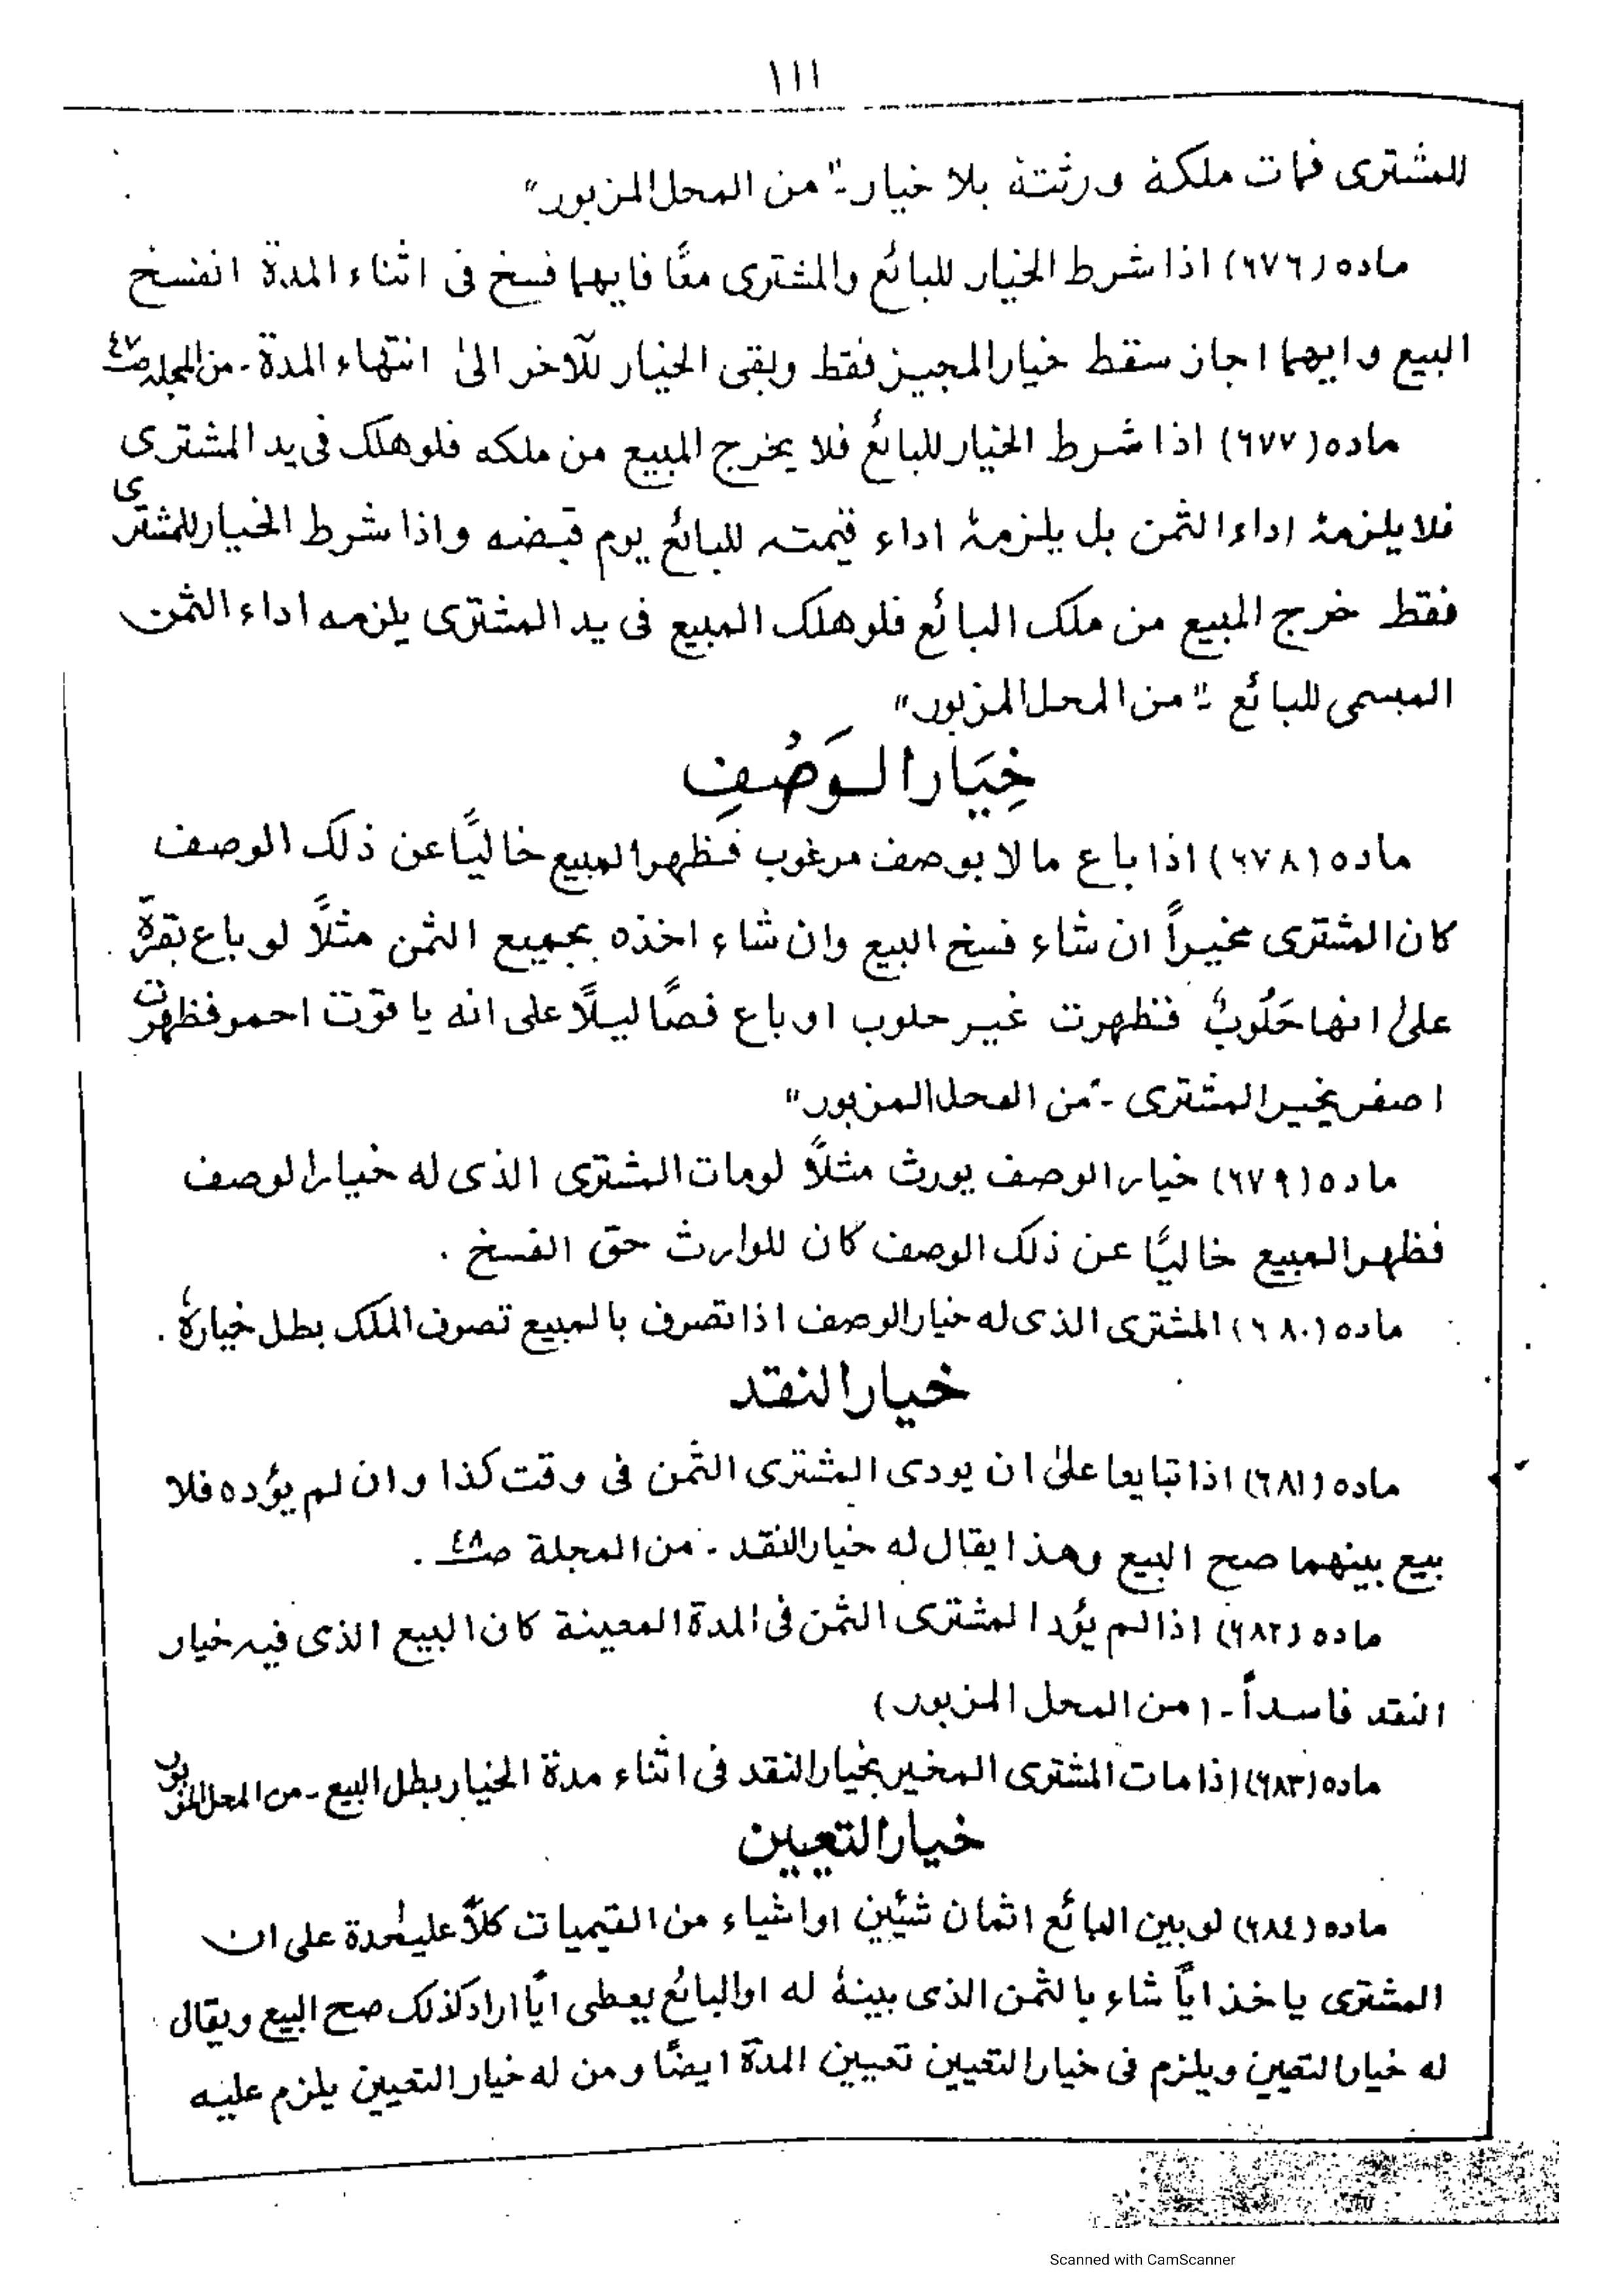 ١١١
للمشترى فمات ملكة ورثتة بلا خيار-" من المحل المزبور"
ماده (٦٧٦) اذا شرط الخيار للبائع والمشترى معًا فايهما فسخ فى اثناء المدة انفسخ
البيع وايهما اجاز سقط خيار المجيز فقط وبقى الخيار للآخر الىٰ انتهاء المدة - من المجلة صـ٤٧
ماده (٦٧٧) اذا شرط الخيار للبائع فلا يخرج المبيع من ملكه فلو هلك فى يد المشترى
فلا يلزمهٔ اداء الثمن بل يلزمهٔ اداء قيمته للبائع يوم قبضه واذا شرط الخيار للمشترى
فقط خرج المبيع من ملك البائع فلو هلك المبيع فى يد المشترى يلزمه اداء الثمن
المسمى للبائع -" من المحل المزبور"
خِيَار الوَصُفِ
ماده (٦٧٨) اذا باع مالا بوصف مرغوب فظهر المبيع خاليًا عن ذلك الوصف
كان المشترى مخيراً ان شاء فسخ البيع وان شاء اخذه بجميع الثمن مثلًا لو باع بقرة
علىٰ انها حَلُوبٌ فظهرت غير حلوب او باع فصًا ليلًا على انه ياقوت احمو فظهرت
اصفر يخير المشترى -" من المحل المزبور"
ماده (٦٧٩) خيار الوصف يورث مثلًا لومات المشترى الذى له خيار الوصف
فظهر المبيع خاليًا عن ذلك الوصف كان للوارث حق الفسخ .
ماده (٦٨٠) المشترى الذى له خيار الوصف اذا تصرف بالمبيع تصرف الملك بطل خيارهٗ .
خيار النقد
ماده (٦٨١) اذا تبايعا علىٰ ان يودى المشترى الثمن فى وقت كذا وان لم يؤده فلا
بيع بينهما صح البيع وهذا يقال له خيار النقد - من المجلة صـ٤٨ .
ماده (٦٨٢) اذا لم يؤد المشترى الثمن فى المدة المعينة كان البيع الذى فيه خيار
النقد فاسداً - (من المحل المزبور)
ماده (٦٨٣) اذا مات المشترى المخير بخيار النقد فى اثناء مدة الخيار بطل البيع - من المحل المزبور
خيار التعيين
ماده (٦٨٤) لو بين البائع اثمان شيئين او اشياء من القيميات كلاً عليٰحدة على ان
المشترى ياخذ اياً شاء بالثمن الذى بينهٔ له او البائع يعطى ايًا اراد كذلك صح البيع ويقال
له خيار التعين ويلزم فى خيار التعيين تعيين المدة ايضًا ومن له خيار التعيين يلزم عليه
Scanned with CamScanner